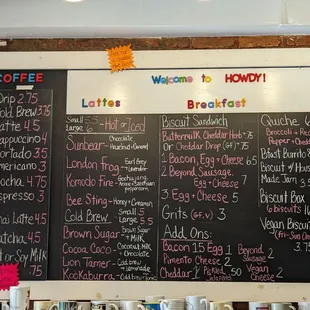 COFFEE
Drip 2.75
Cold Brew
Latte 4.5
appuccino 4
Cortado 3.5
mericano 3
ocha 4.75
spresso 3
hai Latte 4.5
atcha 4.5
or Soy
.75
Welcome to HOWDY!
Lattes
Small 5.5
Large 6
-Hot or Iced
Sunbear
Chocolate
Hazelnut + Caramel
London Fog
Earl Grey
+ Lavender
Komodo Fire
Bee Sting - Honey + Cinnamon
Cold Brew
Small 5
Large 5.5
Brown Sugar - Brown Sugar
+ Milk
Cocoa Coco - Coconut Milk
+ Chocolate
Lion Tamer - Cold brew
+ Lemonade
Kookaburra
Breakfast
Biscuit Sandwich
Buttermilk Cheddar Horb 75
Or Cheddar Drop (GF) .75
1 Bacon, Egg + Cheese 6.5
2 Beyond Sausage,
Egg + Cheese 7
3 Egg + Cheese 5
Grits (GF, V) 3
Add Ons:
Bacon 1.5 Egg 1
Pimento Cheese 2
Cheddar 1 Pickled .50
Jalapeños
Beyond 2
Sausage
Vegan 2
Cheese
Quiche 6
Broccoli + Red
Pepper + Chedd
Blast Burrito 8
Biscuit w/ Hous
Made Jam 3.
Biscuit Box
6 biscuits
Vegan Biscuit
(Fri-Sun On
3.75